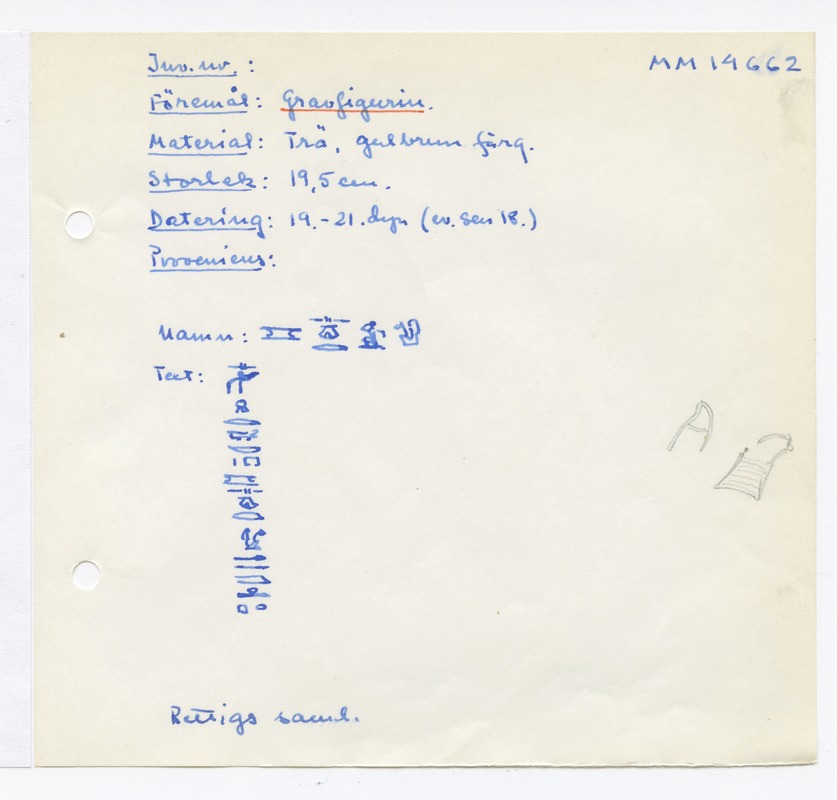 Inv. nr. : MM 19662
Föremål: Gravfigurin.
Material: Trä, gulbrun färg.
Storlek: 19,5 cm.
Datering: 19.-21. dyn (ev. sen 18.)
Proveniens:
Namn:
Text:
A
Rettigs saml.